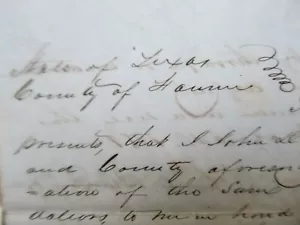 State of Texas
County of Fannin
presents, that I John
and County aforesa
ation of the Sum
dollars, to me in hand